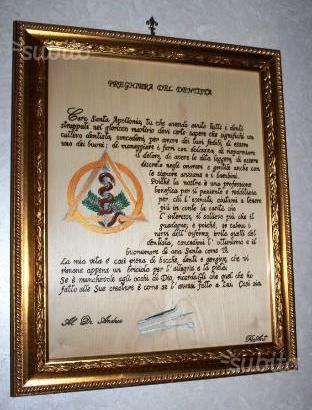 subito
PREGHIERA DEL DENTISTA
Cara Santa Apollonia, tu che avendo avuto tutti i denti
strappati nel glorioso martirio devi certo sapere che significhi un
cattivo dentista, concedimi, per amore dei tuoi fedeli, di essere
uno dei buoni: di maneggiare i ferri con dolcezza, di risparmiare
il dolore, di avere le dita leggere, di essere
decorato negli onorari e gentile anche con
le signore anziane e i bambini.
Poiché la nostra è una professione
benefica per il paziente e redditizia
per chi l'esercita, aiutami a tenere
più in conto la carità che
l'interesse, il sollievo più che il
guadagno; e poiché, se calmi i
nervi dell'infermo, irrita quelli del
dentista, concedimi l'ottimismo e il
buonumore di una Santa come Te.
La mia vita è così piena di bocche, denti e gengive, che vi
rimane appena un briciolo per l'allegria e la gioia.
Se è manchevole agli occhi di Dio, ricordagli che quel che ho
fatto alle Sue creature è come se l'avessi fatto a Lui. Così sia.
Al Dr. Andrea
subito